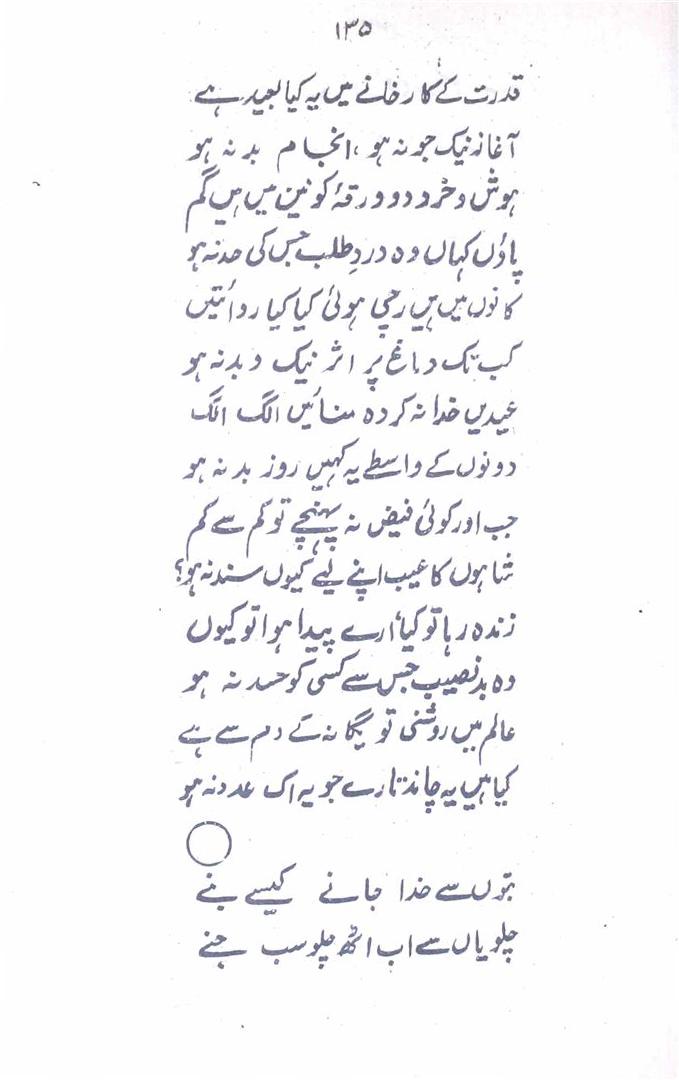 ۱۳۵
قدرت کے کارخانے میں یہ کیا بعید ہے
آغاز نیک جو نہ ہو، انجام بد نہ ہو
ہوش و خرد دو ورقۂ کونین میں ہیں گم
پاؤں کہاں وہ دردِ طلب جس کی حد نہ ہو
کانوں میں ہیں رچی ہوئی کیا کیا روائتیں
کب تک دماغ پر اثر نیک و بد نہ ہو
عیدیں خدا نہ کردہ منائیں الگ الگ
دونوں کے واسطے یہ کہیں روز بد نہ ہو
جب اور کوئی فیض نہ پہنچے تو کم سے کم
شاہوں کا عیب اپنے لیے کیوں سند نہ ہو؟
زندہ رہا تو کیا، ارے پیدا ہوا تو کیوں
وہ بدنصیب جس سے کسی کو حسد نہ ہو
عالم میں روشنی تو یگانہ کے دم سے ہے
کیا ہیں یہ چاند تارے جو یہ اک عدد نہ ہو
بتوں سے خدا جانے کیسے بنے
چلو یاں سے اب اٹھ چلو سب جنے